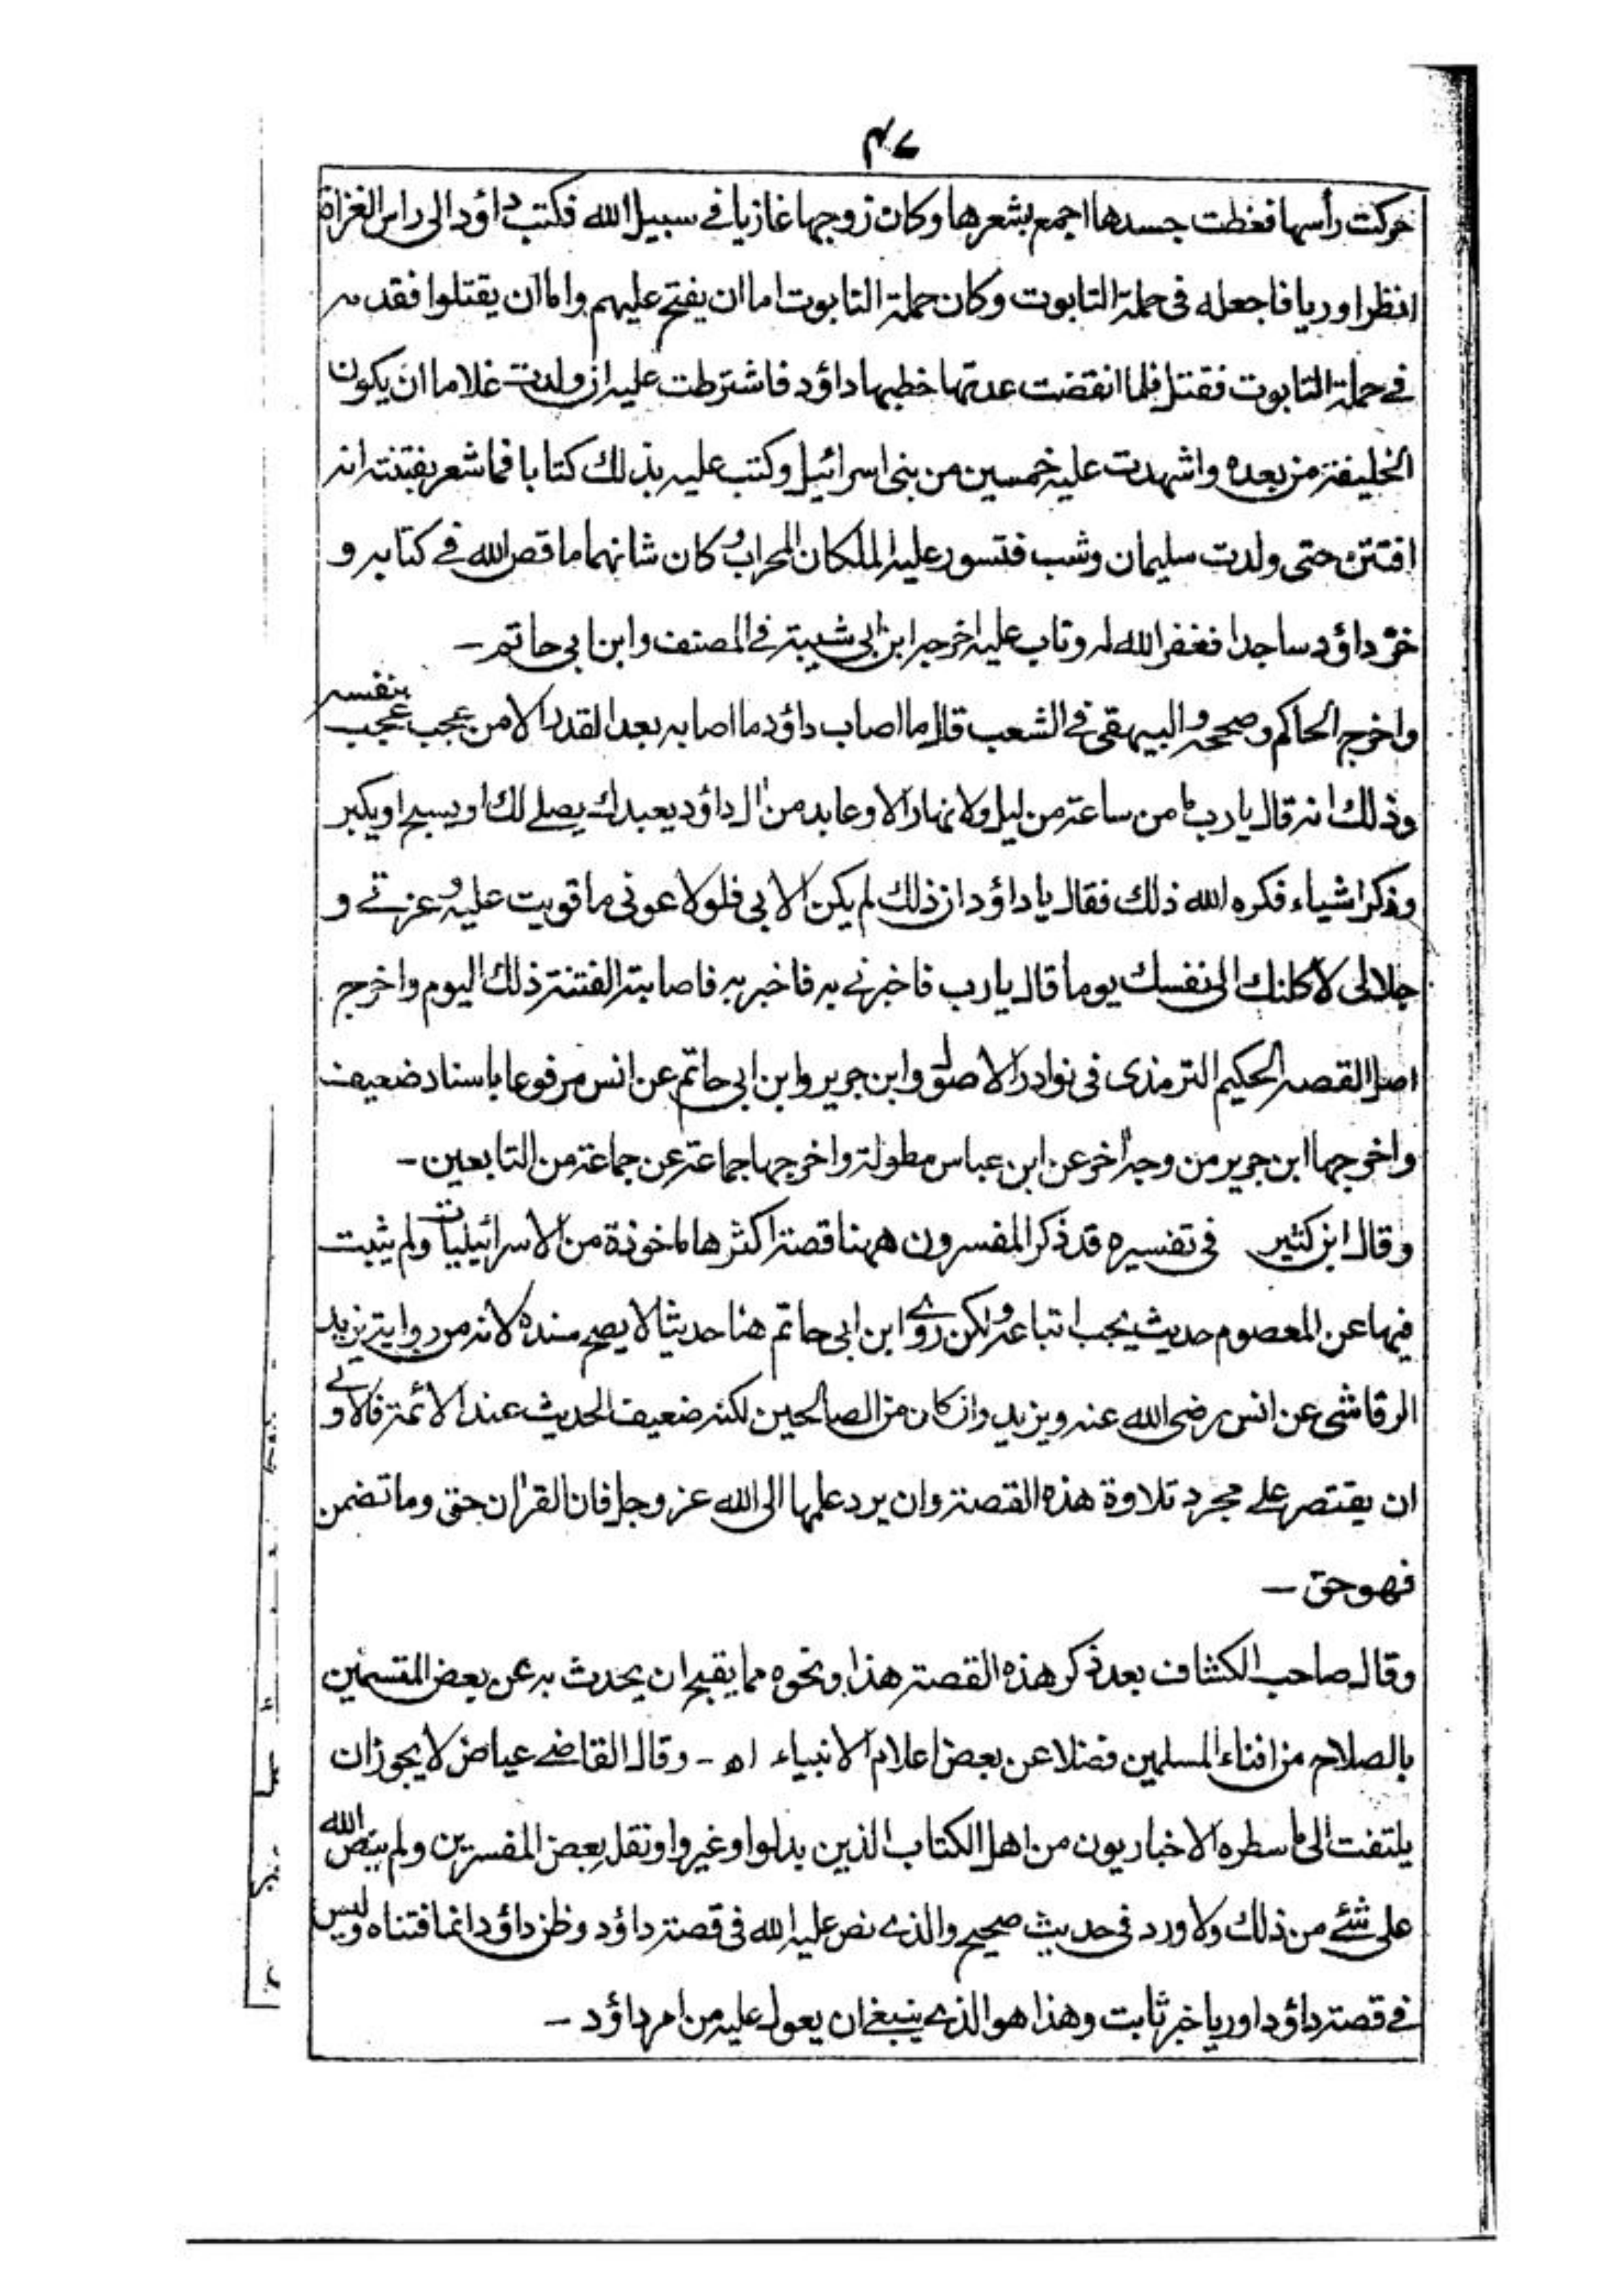 ۴۷
حركت رأسها فغطت جسدها اجمع بشعرها وكان زوجها غازيا في سبيل الله فكتب داؤد الى راس الغزاة
انظر اوريا فاجعله في حملة التابوت وكان حملة التابوت اما ان يفتح عليهم واما ان يقتلوا فقدمه
في حملة التابوت فقتل فلما انقضت عدتها خطبها داؤد فاشترطت عليه ان ولدت غلاما ان يكون
الخليفة من بعده واشهدت عليه خمسين من بنى اسرائيل وكتب عليه بذلك كتابا فما شعر بفتنته انه
افتتن حتى ولدت سليمان وشب فتسور عليه الملكان المحراب وكان شانهما ما قص الله في كتابه و
خرّ داؤد ساجدا فغفر الله له وتاب عليه اخرجه ابن ابي شيبة في المصنف وابن ابي حاتم ـ
واخرج الحاكم وصححه والبيهقى في الشعب قال ما اصاب داؤد ما اصابه بعد القدر الا من عجب عجب بنفسه
وذلك انه قال يا رب ما من ساعة من ليل ولا نهار الا وعابد من اٰل داؤد يعبدك يصلے لك او يسبح او يكبر
وذكر اشياء فكره الله ذلك فقال يا داؤد ان ذلك لم يكن الا بي فلولا عونى ما قويت عليه وعزتے و
جلالى لاكلنك الى نفسك يوما قال يا رب فاخبرنے به فاخبر به فاصابته الفتنة ذلك اليوم واخرج
اصل القصه الحكيم الترمذى فى نوادر الاصول وابن جرير وابن ابى حاتم عن انس مرفوعا باسناد ضعيف
واخرجها ابن جرير من وجه اٰخر عن ابن عباس مطولة واخرجها جماعة عن جماعة من التابعين ـ
وقال ابن كثير فى تفسيره قد ذكر المفسرون ههنا قصة اكثرها ماخوذة من الاسرائيليات ولم يثبت
فيها عن المعصوم حديث يجب اتباعه ولكن روے ابن ابى حاتم هنا حديثا لا يصح سنده لانه من رواية يزيد
الرقاشى عن انس رضى الله عنه ويزيد وان كان من الصالحين لكنه ضعيف الحديث عند الائمة فالاولے
ان يقتصر علے مجرد تلاوة هذه القصة وان يرد علمها الى الله عز وجل فان القراٰن حق وما تضمن
فهو حق ـ
وقال صاحب الكشاف بعد ذكر هذه القصة هذا ونحوه مما يقبح ان يحدث به عن بعض المتسمين
بالصلاح من افناء المسلمين فضلا عن بعض اعلام الانبياء اھ ـ وقال القاضے عياض لا يجوز ان
يلتفت الى ما سطره الاخباريون من اهل الكتاب الذين بدلوا وغيروا ونقل بعض المفسرين ولم ينص الله
على شئے من ذلك ولا ورد فى حديث صحيح والذے نص عليه الله فى قصة داؤد وظن داؤد انما فتناه وليس
فے قصة داؤد اوريا خبر ثابت وهذا هو الذے ينبغے ان يعول عليه من امر داؤد ـ